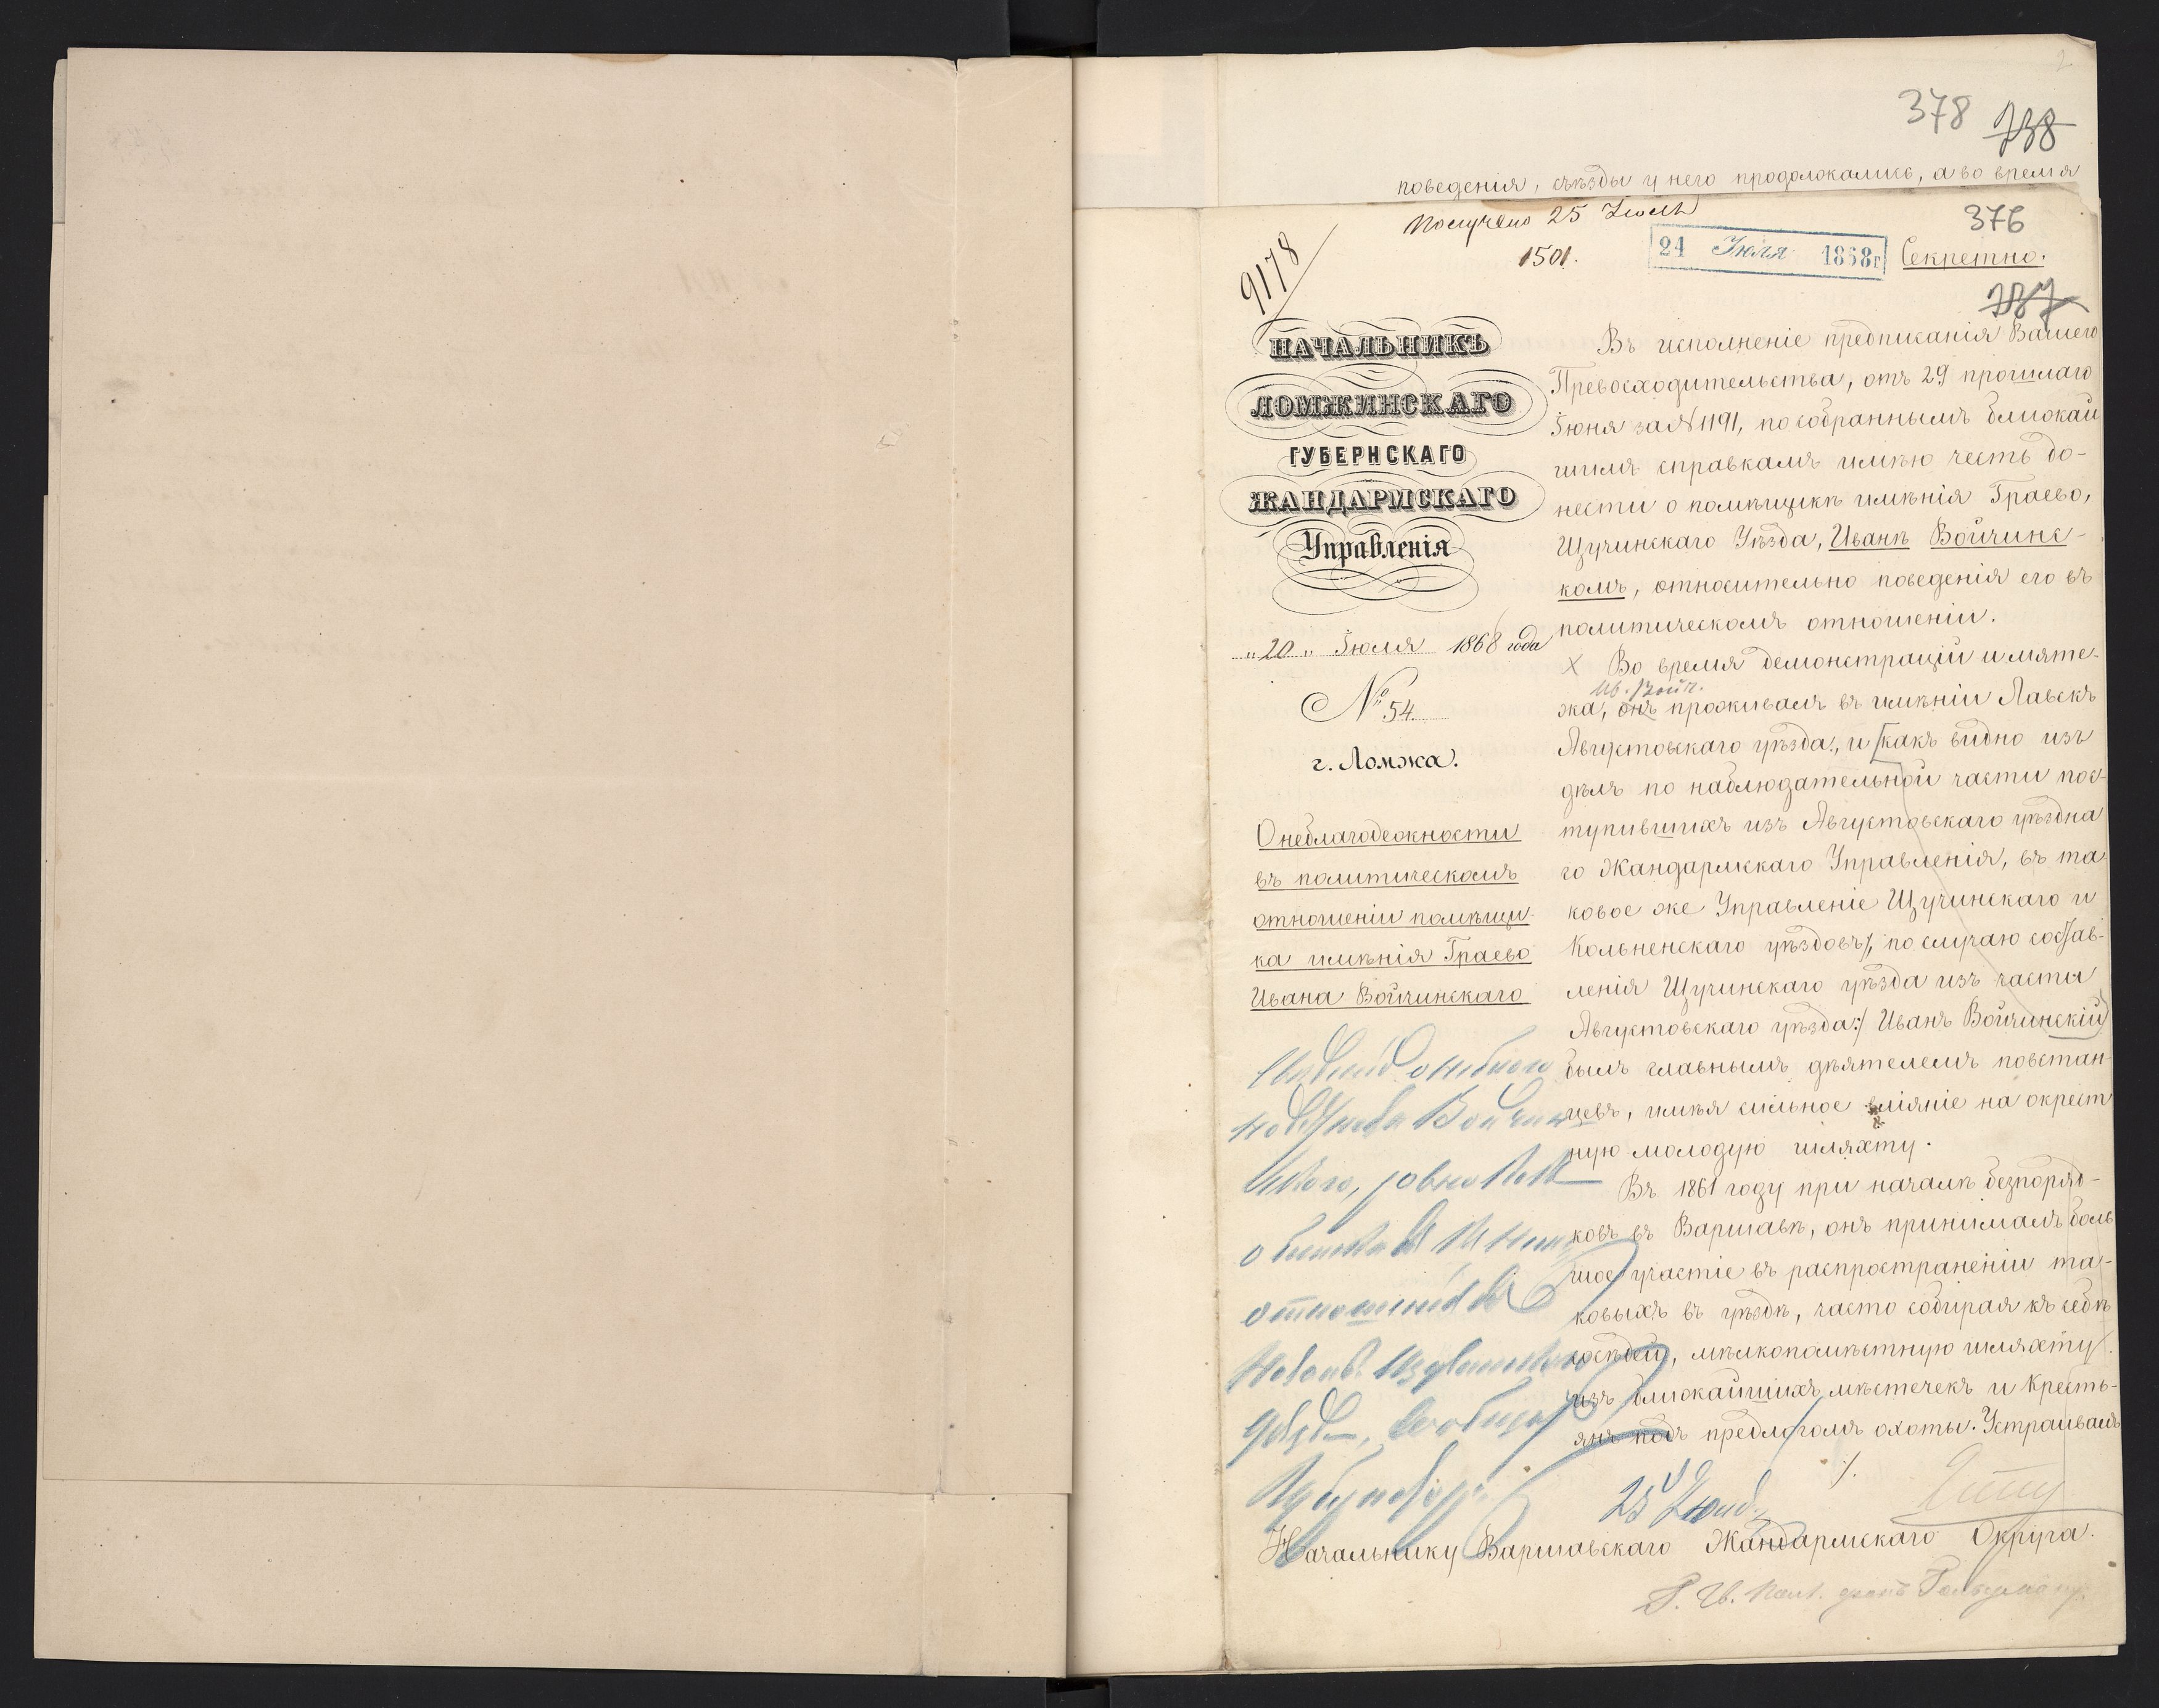 2
378 738
поведенія, съѣзды у него продолжались, а во время
Получено 25 Іюля
1501.
9178
24 Іюля 1868г
376
Секретно.
737
НАЧАЛЬНИКЪ
ЛОМЖИНСКАГО
ГУБЕРНСКАГО
ЖАНДАРМСКАГО
Управленія
„20„ Іюля 1868 года
№ 54.
г. Ломжа.
О неблагодежности
въ политическомъ
отношеніи помѣщи-
ка имѣнія Граево
Ивана Войчинскаго
Въ исполненіе предписанія Вашего
Превосходительства, отъ 29 прошлаго
Іюня за № 1191, по собраннымъ ближай
шимъ справкамъ имѣю честь до-
нести о помѣщикѣ имѣнія Граево,
Щучинскаго Уѣзда, Иванѣ Войчинс-
комъ, относительно поведенія его въ
политическомъ отношеніи.
X Во время демонстрацій и мяте-
Ив. Войч.
жа, онъ проживалъ въ имѣніи Лавскъ
Августовскаго уѣзда, и [какъ видно изъ
дѣлъ по наблюдательной части пос-
тупившихъ изъ Августовскаго уѣздна
го Жандармскаго Управленія, въ та
ковое же Управленіе Щучинскаго и
Кольненскаго уѣздовъ/, по случаю состав-
ленія Щучинскаго уѣзда изъ части
Августовскаго уѣзда:/ Иванъ Войчинскій)
былъ главнымъ дѣятелемъ повстан-
цевъ, имѣя сильное вліяніе на окрест
ную молодую шляхту.
Въ 1861 году при началѣ безпоряд-
ковъ въ Варшавѣ, онъ принималъ боль
шое участіе въ распространеніи та-
ковыхъ въ уѣздѣ, часто собирая къ себѣ
сосѣдей, мѣлкопомѣстную шляхту
изъ ближайшихъ мѣстечекъ и Кресть-
янъ подъ предлогомъ охоты. Устраивалъ
./.
25 Іюля
Начальнику Варшавскаго Жандармскаго Округа.